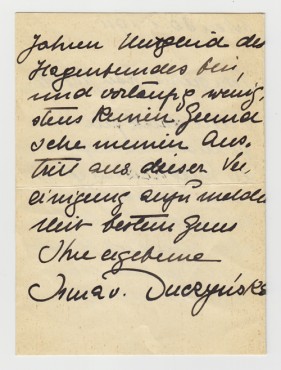 Jahren Mitglied des
Hagenbundes bin,
und vorläufig wenig,
stens keinen Grund
sehe meinen Aus,
tritt aus dieser Ver,
einigung anzumelde
Mit bestem Gruss
Ihre ergebene
Irma v. Duczyńska